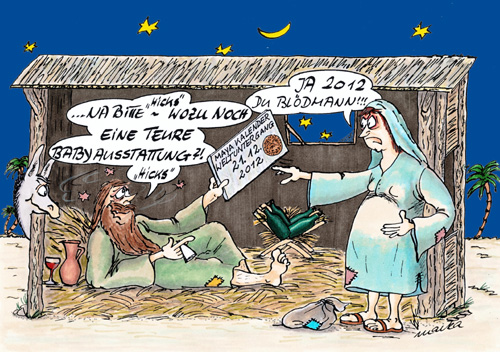 ...NA BITTE ~ "HICKS" WOZU NOCH
EINE TEURE
BABYAUSSTATTUNG?!
"HICKS"
MAYA KALENDER
WELTUNTERGANG
21.12.
2012
JA 2012
DU BLÖDMANN!!!
marka